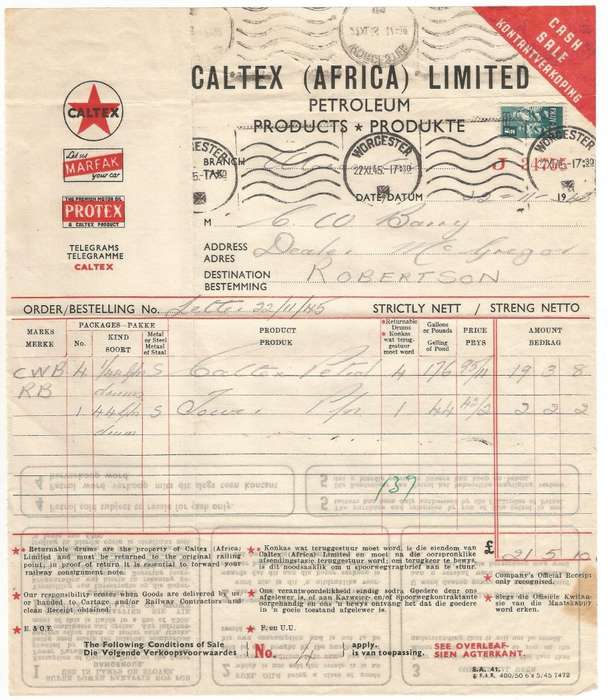 CASH
SALE
KONTANTVERKOPING
CALTEX (AFRICA) LIMITED
PETROLEUM
PRODUCTS ★ PRODUKTE
CALTEX
Let us
MARFAK
your car
THE PREMIUM MOTOR OIL
PROTEX
A CALTEX PRODUCT
TELEGRAMS
TELEGRAMME
CALTEX
WORCESTER
22XI.45-17
WORCESTER
BRANCH
TAK
J 31755
DATE/DATUM 22-11-1945
M C. W. Barry
ADDRESS
ADRES
Dealer McGregor
DESTINATION
BESTEMMING
ROBERTSON
ORDER/BESTELLING No. Letter 22/11/45 STRICTLY NETT / STRENG NETTO
MARKS
MERKE
PACKAGES-PAKKE
No.
KIND
SOORT
Metal
or Steel
Metaal
of Staal
PRODUCT
PRODUK
★Returnable
Drums
Konkas
wat terug-
gestuur
moet word
Gallons
or Pounds
Gelling
of Pond
PRICE
PRYS
AMOUNT
BEDRAG
CWB 4 S Caltex Petrol 4 176 19 3 8
RB drums
1 44 S Power 1 44 2 2 2
drum
137
£ 21 5 10
★ Returnable drums are the property of Caltex (Africa)
Limited and must be returned to the original railing
point; in proof of return, it is essential to forward your
railway consignment note.
★ Our responsibility ceases when Goods are delivered by us
or handed to Cartage and/or Railway Contractors and
clean Receipt obtained.
★ E. & O.E.
★ Konkas wat teruggestuur moet word, is die eiendom van
Caltex (Africa) Limited en moet na die oorspronklike
afsendingstasie teruggestuur word; om terugkeer te bewys,
is dit noodsaaklik om u spoorwegvragbrief aan te stuur.
★ Ons verantwoordelikheid eindig sodra Goedere deur ons
afgelewer is, of aan Karweier- en of Spoorwegkontrakteurs
oorgehandig en ons 'n bewys ontvang het dat die goedere
in 'n goeie toestand afgelewer is.
★ F. en U.U.
★ Company's Official Receipt
only recognised.
★ Slegs die Offisiële Kwitan-
sie van die Maatskappy
word erken.
The Following Conditions of Sale
Die Volgende Verkoopsvoorwaardes
No. 4
apply.
is van toepassing.
SEE OVERLEAF.
SIEN AGTERKANT.
S.A. 41.
400/50/6 x 5/45 1472